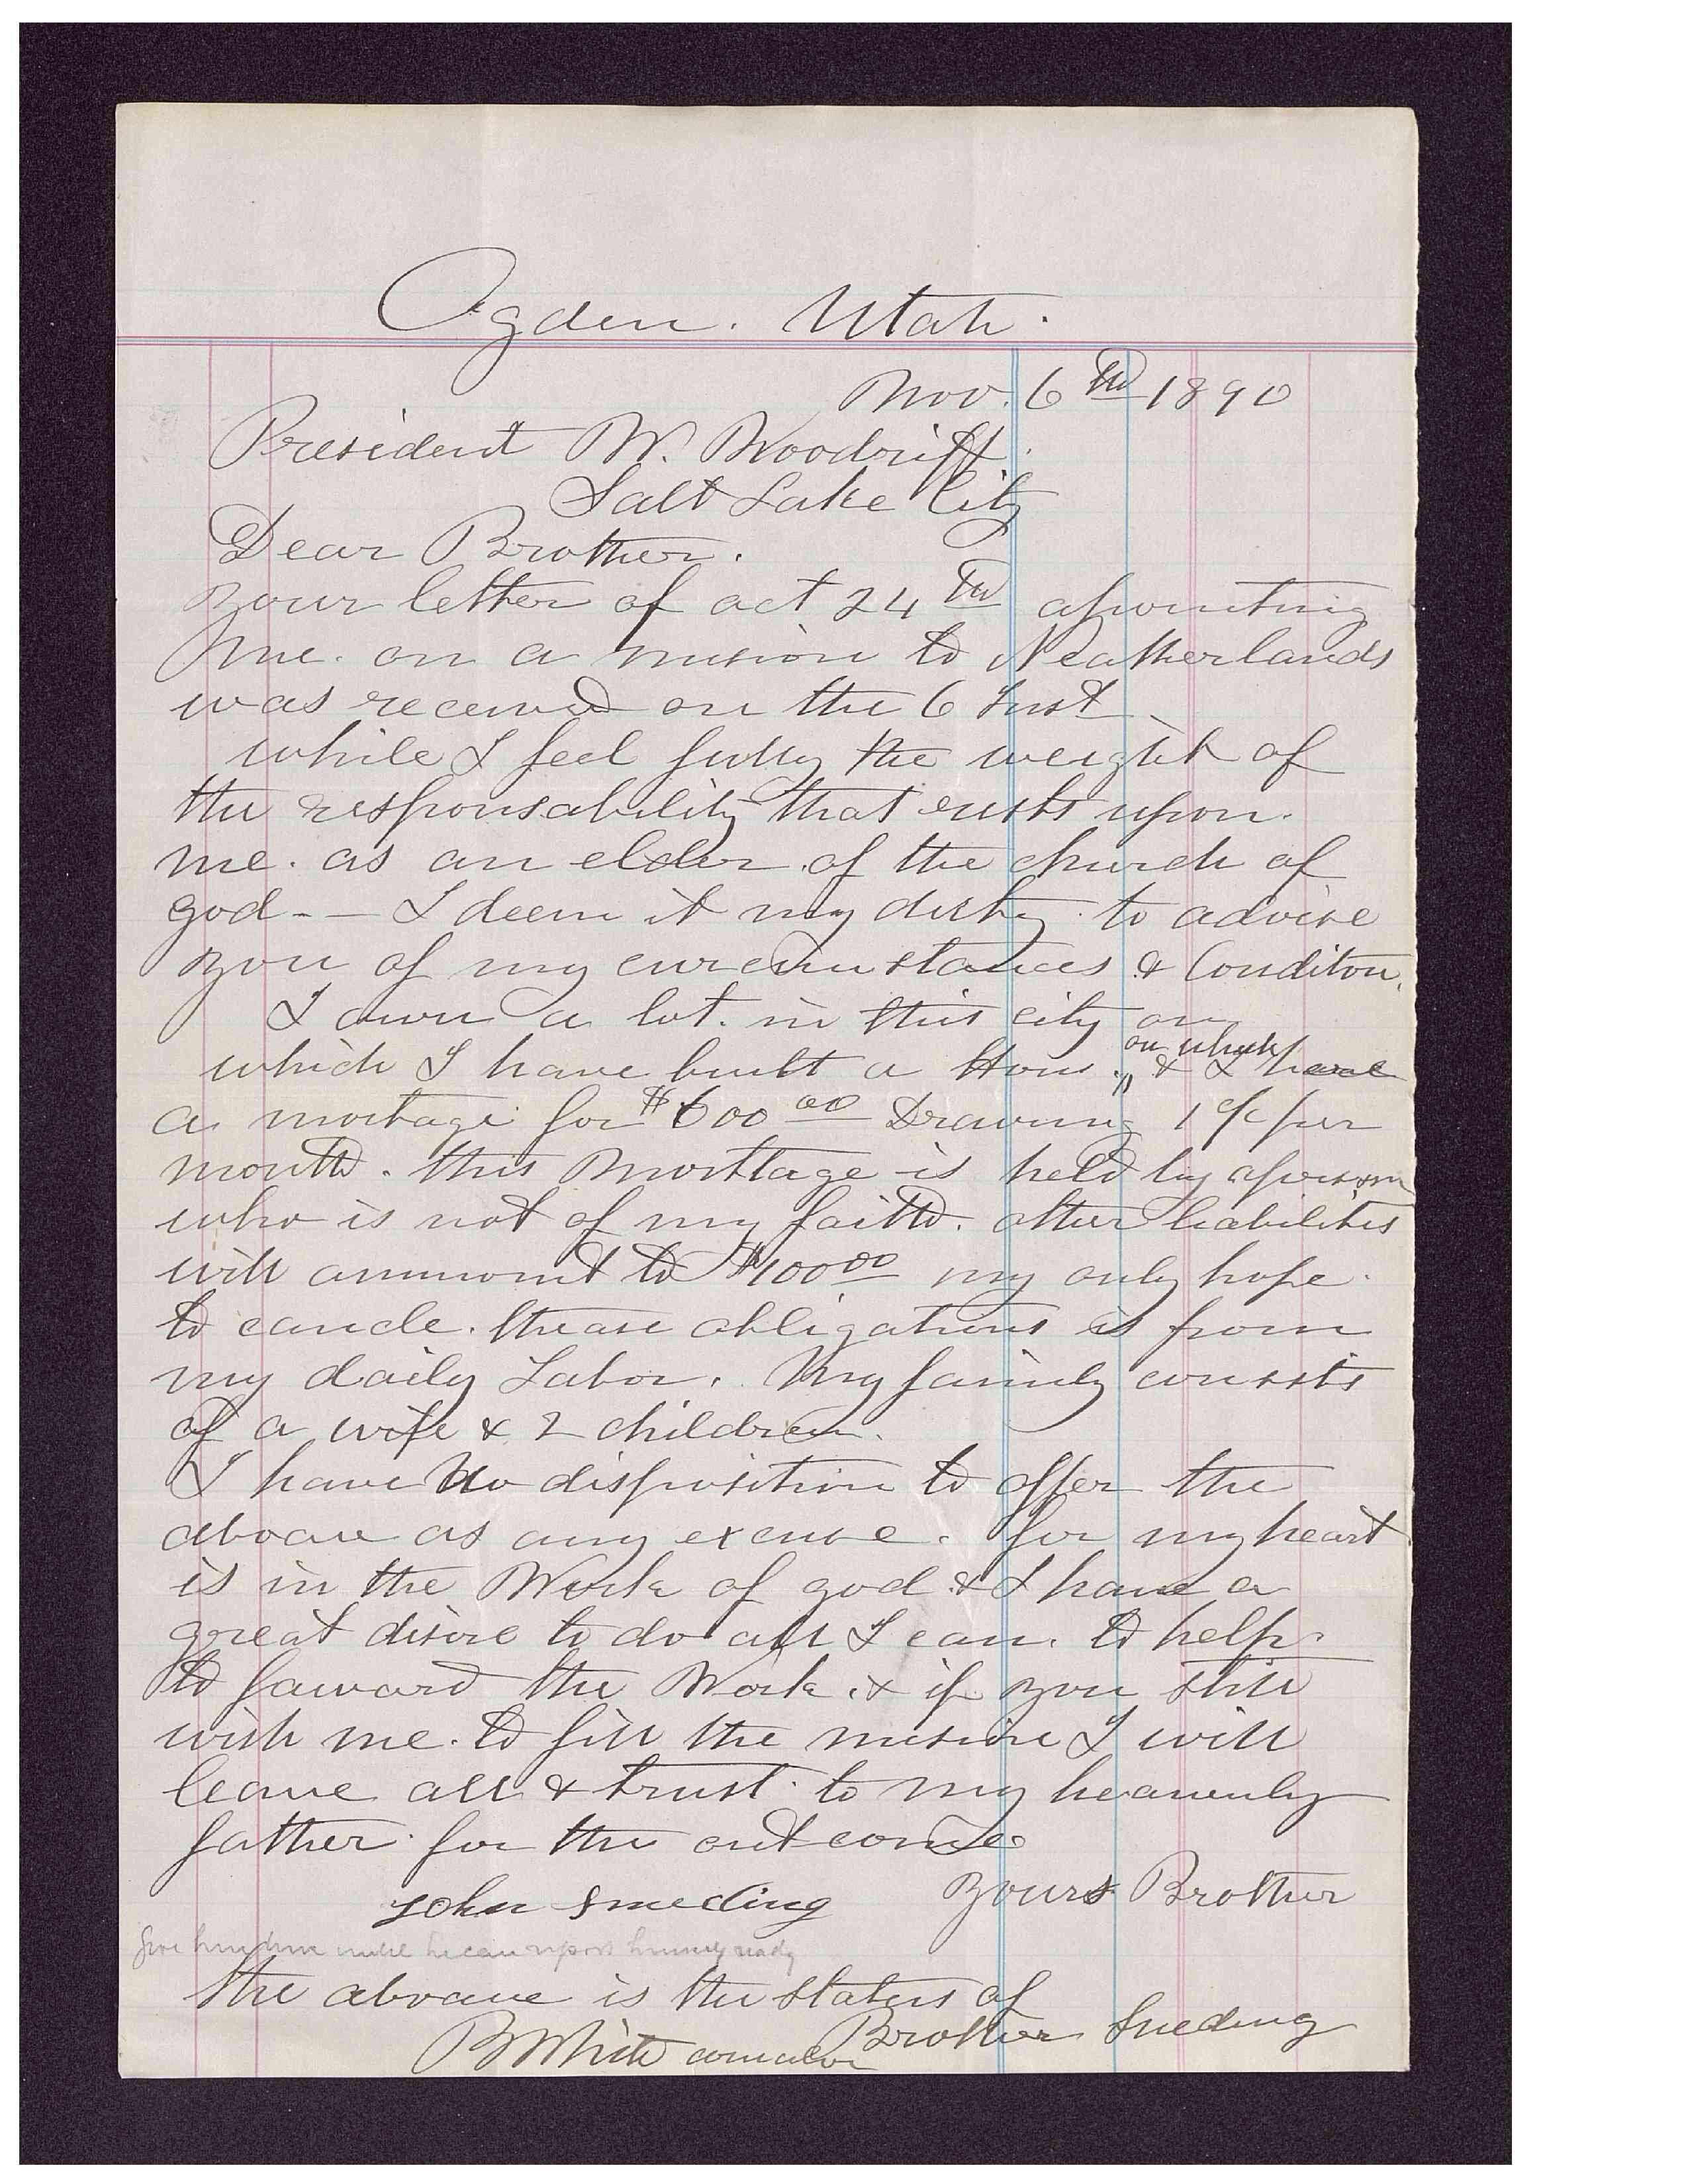 Ogden. Utah.
Nov. 6th 1890
President W. Woodriff.
Salt Lake City
Dear Brother.
your letter of oct 24th apointing
me. on a mision to Neatherlands
was received on the 6 Inst
while I feel fully the weight of
the responsability that rests upon.
me. as an elder of the church of
god -- I deem it my duty. to advise
you of my circumstances & Conditon.
I own a lot. in this city on
on which
which I have built a Hous. " & I have
a mortage for $600 00 Drawing 1 % per
month. this Morttage is held by a person
who is not of my faith. other liabilities
will ammount to $100 00 my only hope.
to cancle. thease obligations is from
my daily Labor. My family consists
of a wife & 2 children.
I have No disposition to offer the
aboave as any excuse. for my heart
is in the Work of god & I have a
great disire to do all I can. to help.
to faward the Work. & if you still
wish me. to fill the mision I will
leave all & trust. to my heavenly
father. for the outcome
Yours Brother
John Smeding
Give him time until he can report himself ready
the aboave is the staters of
Brother Smeding
B White